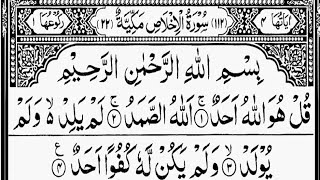 اٰيَاتُهَا ٤ (١١٢) سُوْرَةُ الْاِخْلَاصِ مَكِّيَّةٌ (٢٢) رُكُوْعُهَا ١
بِسْمِ اللّٰهِ الرَّحْمٰنِ الرَّحِيْمِ
قُلْ هُوَ اللّٰهُ اَحَدٌ ۚ ١ اَللّٰهُ الصَّمَدُ ۚ ٢ لَمْ يَلِدْ ۙ وَلَمْ
يُوْلَدْ ۙ ٣ وَلَمْ يَكُنْ لَّهٗ كُفُوًا اَحَدٌ ع ٤